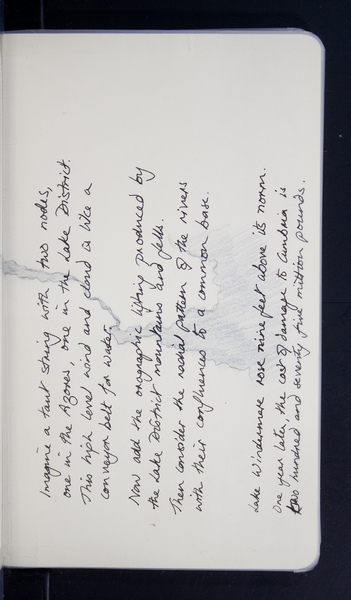 Imagine a taut string with two nodes,
one in the Azores, one in the Lake District.
This high level wind and cloud is like a
conveyor belt for water.
Now add the orographic lifting produced by
the Lake District mountains and fells.
Then consider the radial pattern of the rivers
with their confluences to a common base.
Lake Windermere rose nine feet above its norm.
One year later, the cost of damage to Cumbria is
two hundred and seventy five million pounds.